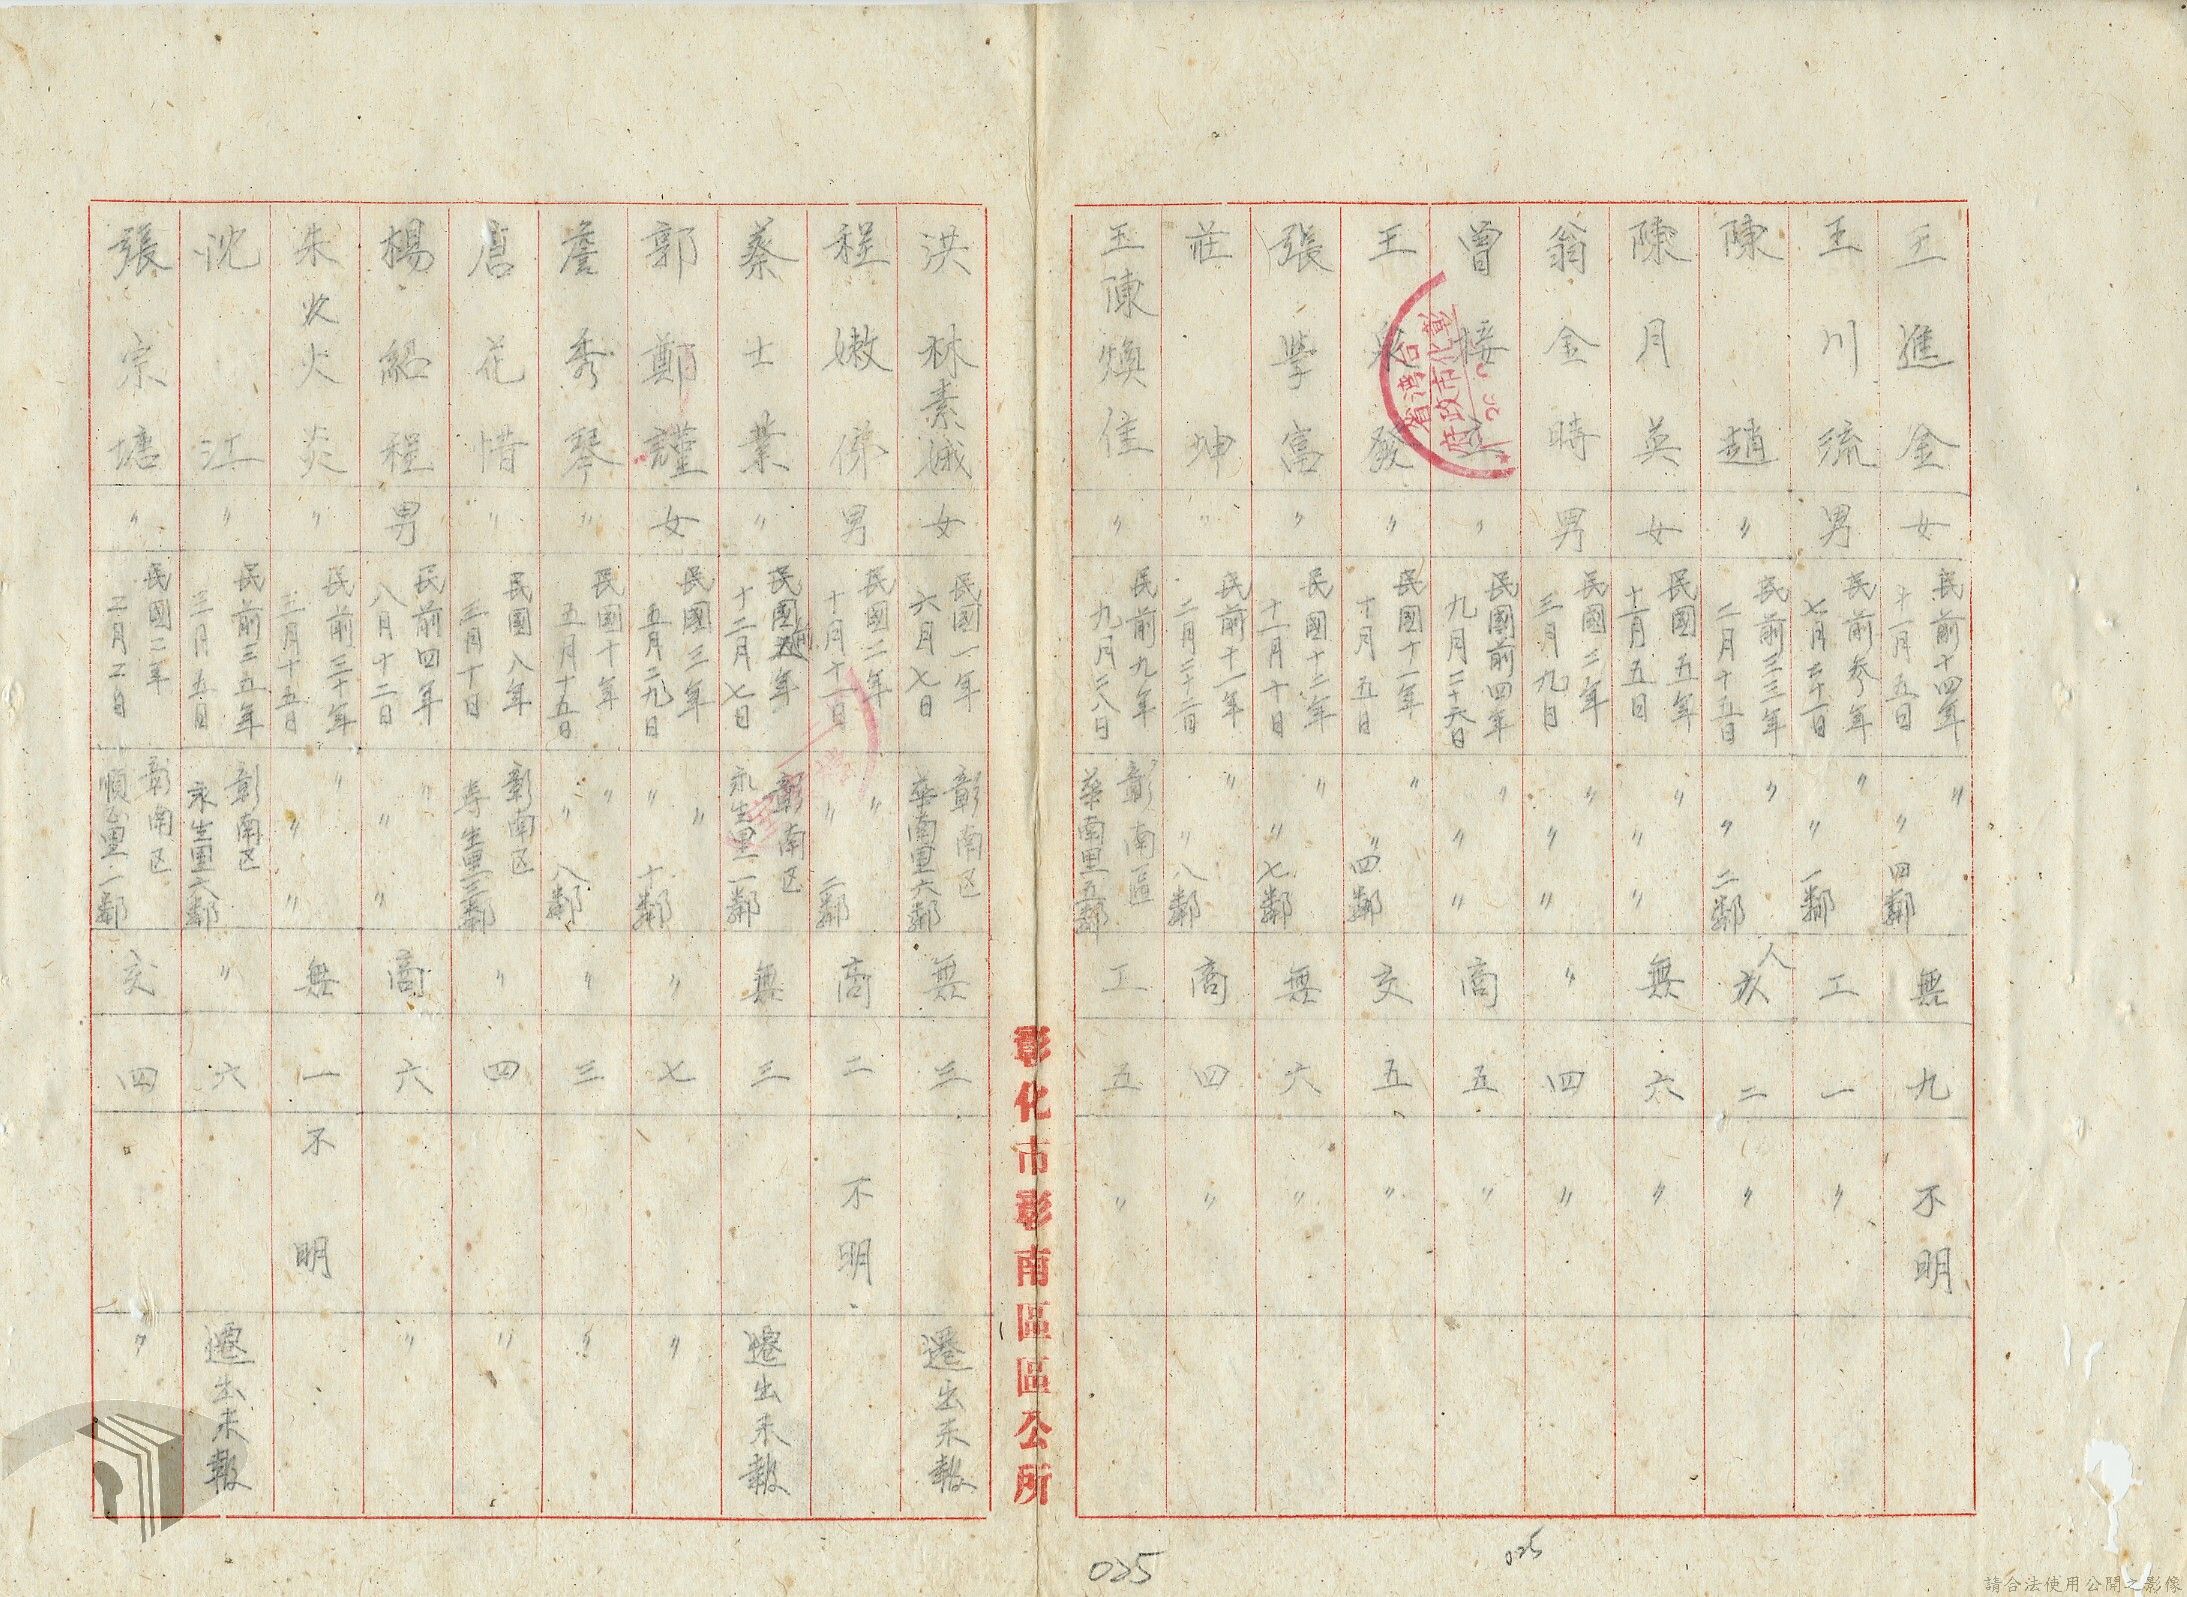 王進金 女 民前十四年十一月五日 〃〃四鄰 無 九 不明
王川流 男 民前參年七月二十一日 〃〃一鄰 工 一 〃
陳趙 〃 民前三三年二月十五日 〃〃二鄰 人 二 〃
陳月英 女 民國五年十一月五日 〃〃〃 無 六 〃
翁金時 男 民國二年三月九日 〃〃〃 〃 四 〃
曾接 〃 民國前四年九月二十六日 〃〃〃 商 五 〃
王發 〃 民國十一年十月五日 〃〃四鄰 交 五 〃
張學富 〃 民國十二年十一月十日 〃〃七鄰 無 六 〃
莊坤 〃 民前十一年二月二十二日 〃〃八鄰 商 四 〃
王陳煥佳 〃 民前九年九月二八日 彰南區華南里五鄰 工 五 〃
彰化市彰南區區公所
洪林素娀 女 民國一年六月七日 彰南区華南里六鄰 無 三 遷出未報
程嫩佛 男 民國二年十月十一日 〃〃二鄰 商 二 不明
蔡士業 〃 民國年十二月七日 彰南区永生里一鄰 無 三 遷出未報
郭鄭謹 女 民國三年五月二九日 〃〃十鄰 〃 七 〃
詹秀琴 〃 民國十年五月十五日 〃〃八鄰 〃 三 〃
唐花惜 〃 民國八年三月十日 彰南区寿生里三鄰 〃 四 〃
楊紹程 男 民前四年八月十二日 〃〃〃 商 六 〃
朱火炎 〃 民前三十年三月十五日 〃〃〃 無 一 不明
沈江 〃 民前三五年三月五日 彰南区永生里六鄰 〃 六 遷出未報
張宗塘 〃 民國二年二月二日 彰南区順里一鄰 交 四 〃
彰化市政府
台灣省
025
025
請合法使用公開之影像